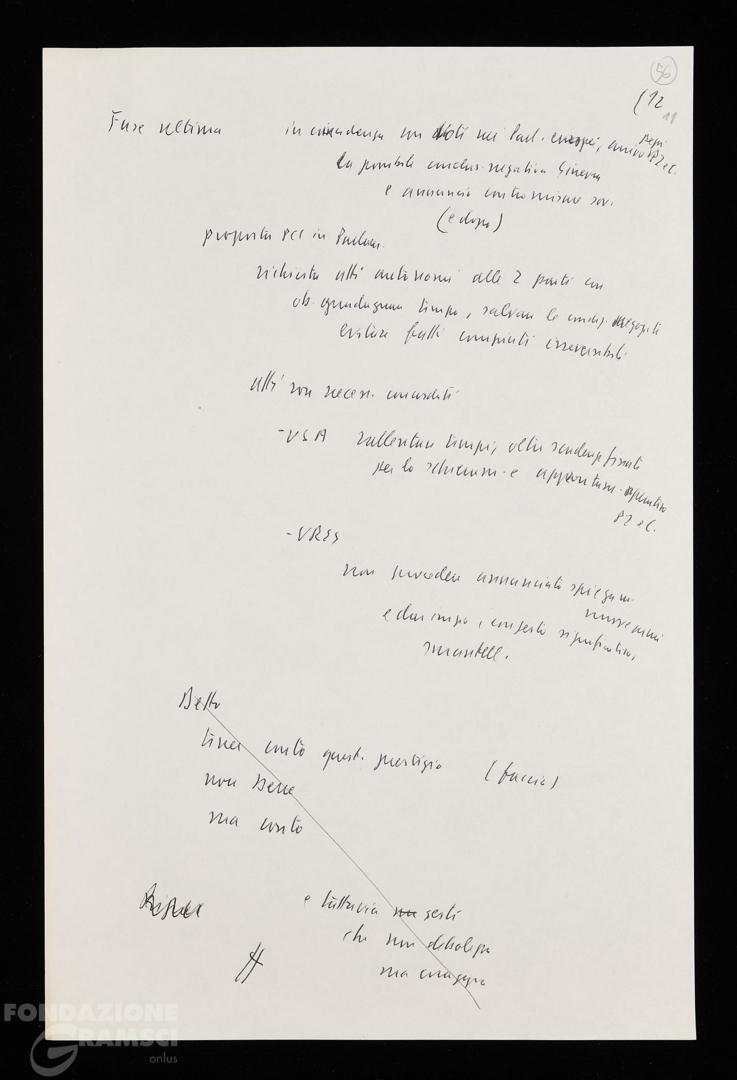 56
(12
11
Fase ultima in coincidenza con voti nei Parl. europei, arrivo P2 e C.
la possibile conclus. negativa Ginevra
e annuncio contromisure sov.
(e dopo)
proposta PCI in Parlam.
richiesta atti autonomi alle 2 parti con
ob. guadagnare tempo, salvare le negoziati
evitare fatti compiuti irreversibili
atti non necess. concordati
- USA rallentare tempi, oltre scadenze fissate
per lo schieram. e operativo
P2 e C.
- URSS
non procedere annunciato spiegam.
nuove armi
e dare inizio, con gesto significativo,
smantell.
Detto
tener conto quest. prestigio (faccia)
non bene
ma conto
e tuttavia gesti
che non debolezza
ma coraggio
FONDAZIONE
GRAMSCI
onlus